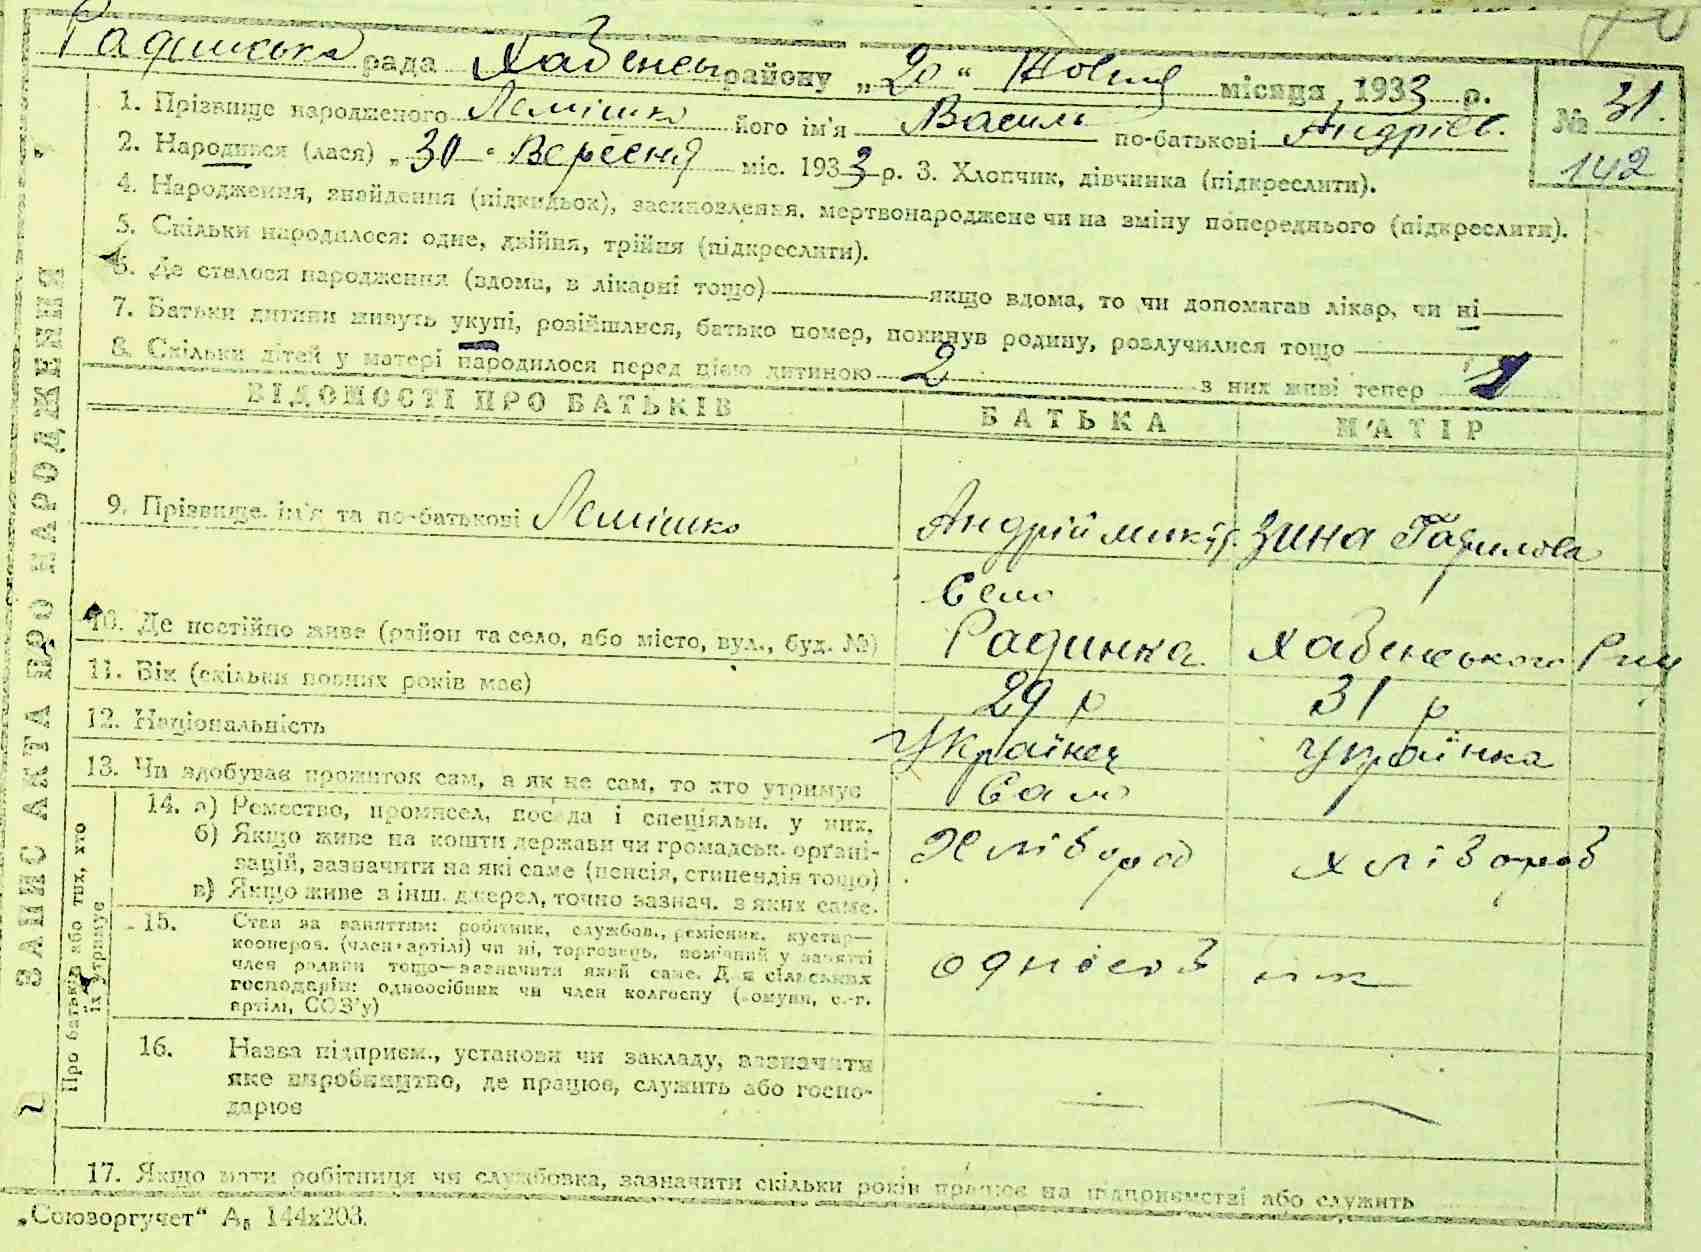 Радинська рада Хабенськ району „20“ Жовтня місяця 1933 р.
1. Прізвище народженого Лемішко його ім'я Василь по-батькові Андрієв.
№ 31.
142
2. Народився (лася) „30“ Вересня міс. 1933 р. 3. Хлопчик, дівчинка (підкреслити).
4. Народження, знайдення (підкидьок), засиновлення, мертвонароджене чи на зміну попереднього (підкреслити).
5. Скільки народилося: одне, двійня, трійня (підкреслити).
6. Де сталося народження (вдома, в лікарні тощо) якщо вдома, то чи допомагав лікар, чи ні
7. Батьки дитини живуть укупі, розійшлися, батько помер, покинув родину, розлучилися тощо
8. Скільки дітей у матері народилося перед цією дитиною 2 з них живі тепер
ВІДОМОСТІ ПРО БАТЬКІВ БАТЬКА М'АТІР
9. Прізвище, ім'я та по-батькові Лемішко Андрій Микит. Зина Гаврилова
Село
10. Де постійно живе (район та село, або місто, вул., буд. №) Радинка Хабенського
11. Вік (скільки повних років має) 29 р 31 р
12. Національність Українец Українка
13. Чи здобуває прожиток сам, а як не сам, то хто утримує Сам
14. а) Ремество, промисел, посада і спеціяльн. у них,
б) Якщо живе на кошти держави чи громадськ. організацій, зазначити на які саме (пенсія, стипендія тощо) Хлібороб хлібороб
в) Якщо живе з інш. джерел, точно зазнач. з яких саме.
15. Стан за заняттям: робітник, службов., ремісник, кустар—
кооперов. (член артілі) чи ні, торговець, помічний у занятті
член родини тощо—зазначити який саме. Для сільських
господарів: одноосібник чи член колгоспу (комуни, с.-г.
артілі, СОЗ'у)
одноосібник
16. Назва підприєм., установи чи закладу, зазначити
яке виробництво, де працює, служить або госпо-
дарює
17. Якщо мати робітниця чи службовка, зазначити скільки років працює на підприємстві або служить
„Союзоргучет“ А₅ 144х203.
ЗАПИС АКТА ПРО НАРОДЖЕННЯ
Про батьків або тих, хто
їх утримує